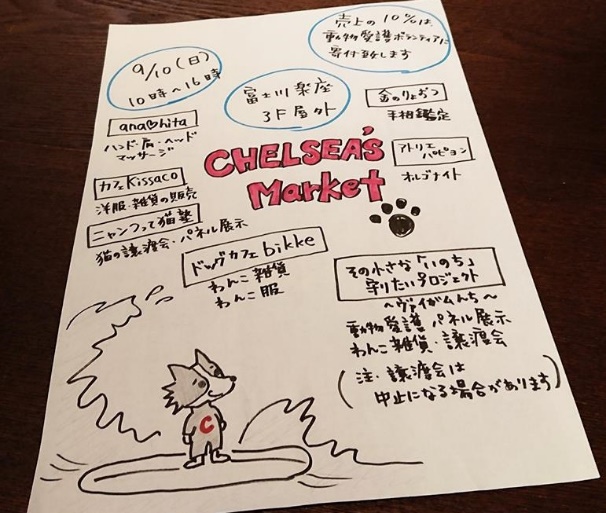 売上の10%は、
動物愛護ボランティアに
寄付致します
9/10(日)
10時〜16時
富士川楽座
3F屋外
ana♡hita
ハンド・肩・ヘッド
マッサージ
金のりょおつ
手相鑑定
CHELSEA'S
Market
アトリエ
パピヨン
オルゴナイト
カフェKissaco
洋服・雑貨の販売
ニャンフって猫塾
猫の譲渡会・パネル展示
ドッグカフェbikke
わんこ雑貨
わんこ服
その小さな「いのち」
守りたいプロジェクト
〜ヴァイがムんち〜
動物愛護パネル展示
わんこ雑貨・譲渡会
(注・譲渡会は
中止になる場合があります)
C